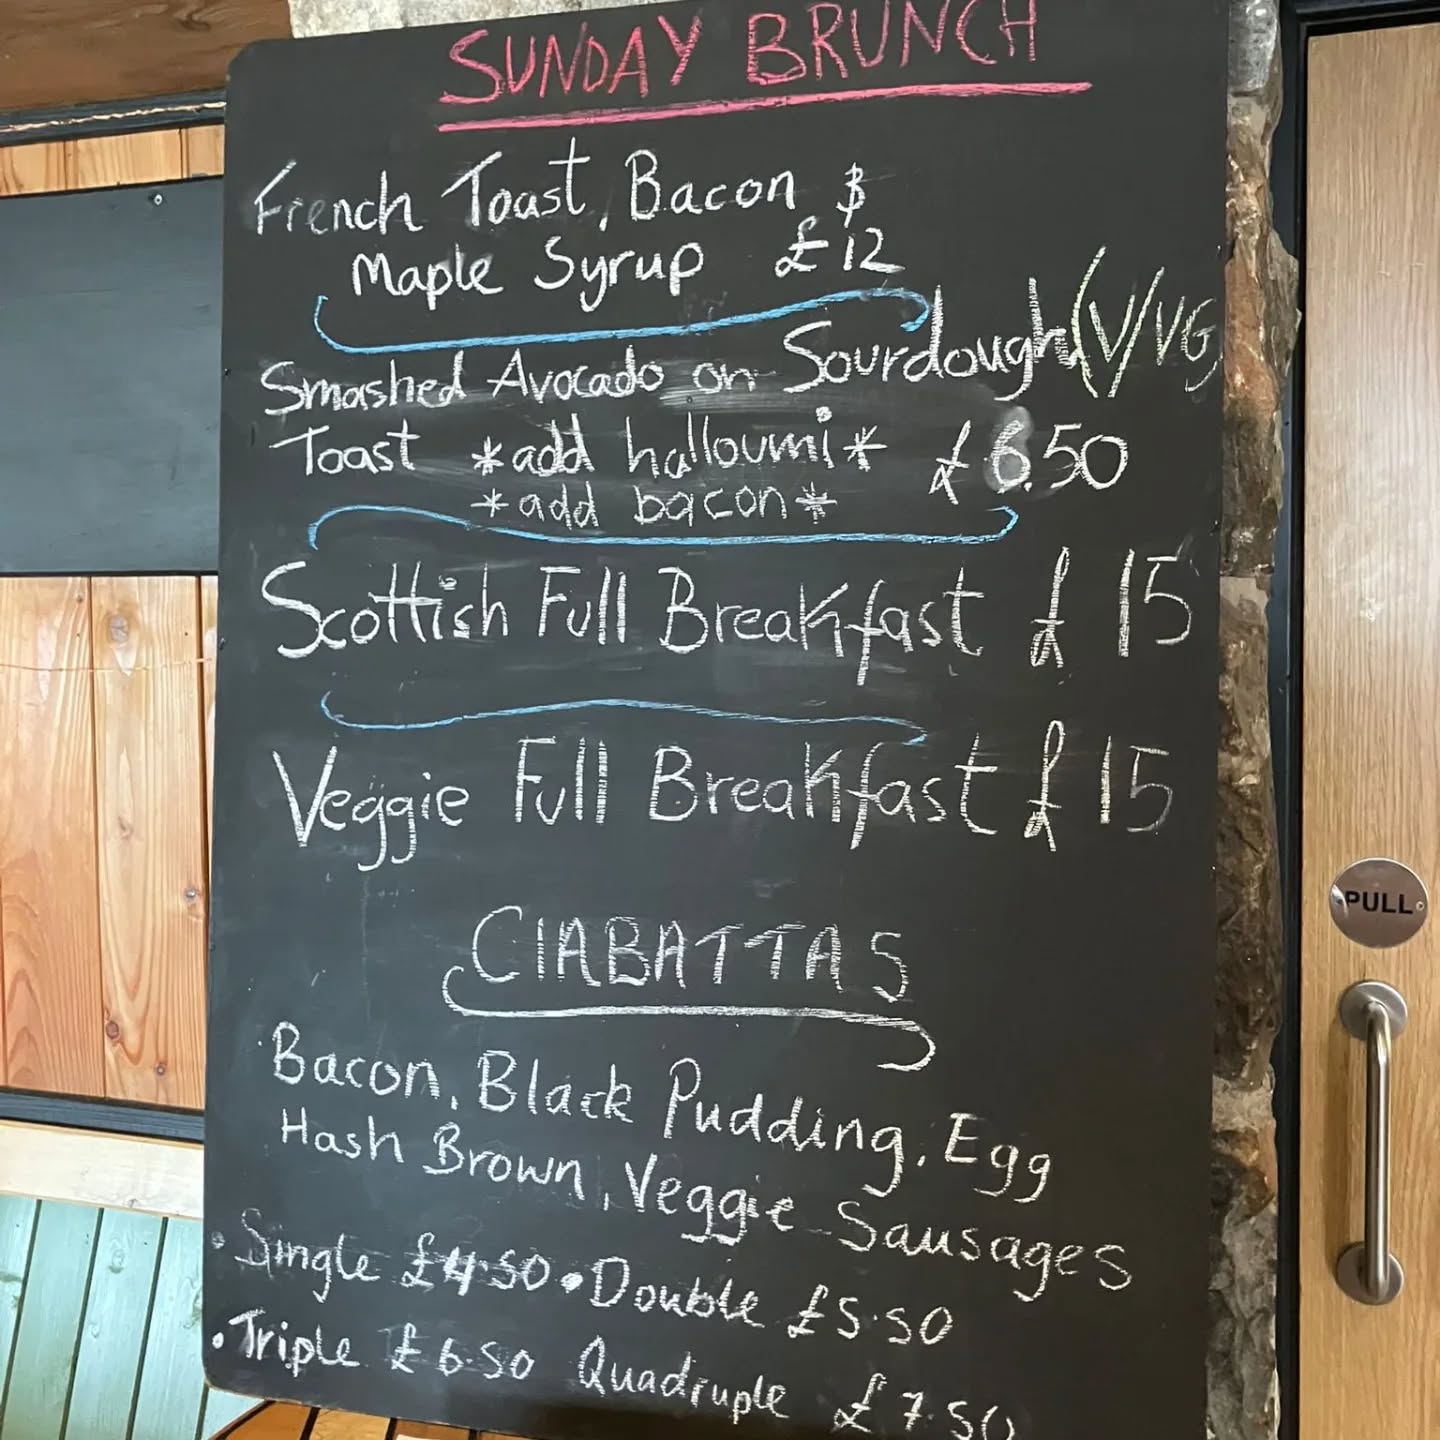 SUNDAY BRUNCH
French Toast, Bacon &
Maple Syrup £12
Smashed Avocado on Sourdough (V/VG)
Toast *add halloumi* £6.50
*add bacon*
Scottish Full Breakfast £15
Veggie Full Breakfast £15
CIABATTAS
Bacon, Black Pudding, Egg
Hash Brown, Veggie Sausages
• Single £4.50 • Double £5.50
• Triple £6.50 Quadruple £7.50
PULL